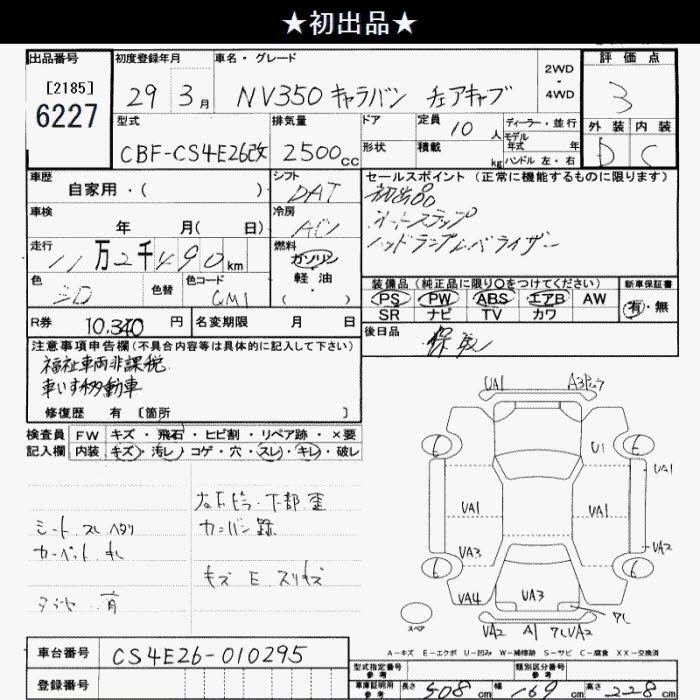 ★初出品★
出品番号
[2185]
6227
初度登録年月
29年 3月
車名・グレード
NV350 キャラバン チェアキャブ
2WD
4WD
評価点
3
外装 内装
D C
型式
CBF-CS4E26改
排気量
2500cc
ドア
形状
定員 10人
積載 kg
ディーラー・並行
モデル年式 年
ハンドル 左・右
車歴
自家用・( )
シフト
DAT
セールスポイント (正常に機能するものに限ります)
初出品
オートステップ
ヘッドランプレベライザー
車検
年 月( 日)
冷房
AC
走行
11万2千490km
燃料
ガソリン
軽油
( )
色
色替
色コード
R券 10,340円
名変期限 月 日
装備品 (純正品に限り○をつけてください)
PS PW ABS エアB AW
SR ナビ TV カワ
新車保証書
有・無
後日品
保取
注意事項申告欄(不具合内容等は具体的に記入して下さい)
福祉車両非課税
車いす移動車
修復歴 有 [箇所 ]
検査員記入欄
FW キズ・飛石・ヒビ割・リペア跡・×要
内装 キズ・汚レ・コゲ・穴・スレ・キレ・破レ
シート スレ ヘタリ
カーペット キレ
下部
キズ E スリキズ
UA1
U1
UA1
UA1
UA1
UA2
UA3
UA4
UA3
UA2
A1
UA2
E
E
E
E
スペア
A-キズ E-エクボ U-凹み W-補修跡 S-サビ C-腐食 XX-交換済
車台番号
CS4E26-010295
登録番号
型式指定番号
参考
類別区分番号
参考
車庫証明用
参考
長さ 508cm
幅 169cm
高さ 228cm